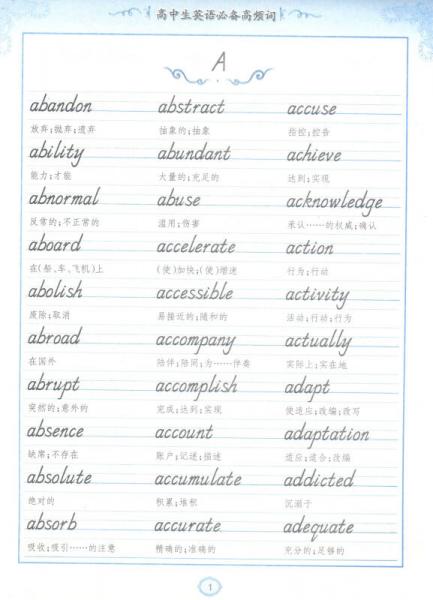 高中生英语必备高频词
A
abandon abstract accuse
放弃;抛弃;遗弃 抽象的;抽象 指控;控告
ability abundant achieve
能力;才能 大量的;充足的 达到;实现
abnormal abuse acknowledge
反常的;不正常的 滥用;伤害 承认……的权威;确认
aboard accelerate action
在(船、车、飞机)上 (使)加快;(使)增速 行为;行动
abolish accessible activity
废除;取消 易接近的;随和的 活动;行动;行为
abroad accompany actually
在国外 陪伴;陪同;为……伴奏 实际上;实在地
abrupt accomplish adapt
突然的;意外的 完成;达到;实现 使适应;改编;改写
absence account adaptation
缺席;不存在 账户;记述;描述 适应;适合;改编
absolute accumulate addicted
绝对的 积累;堆积 沉溺于
absorb accurate adequate
吸收;吸引……的注意 精确的;准确的 充分的;足够的
1